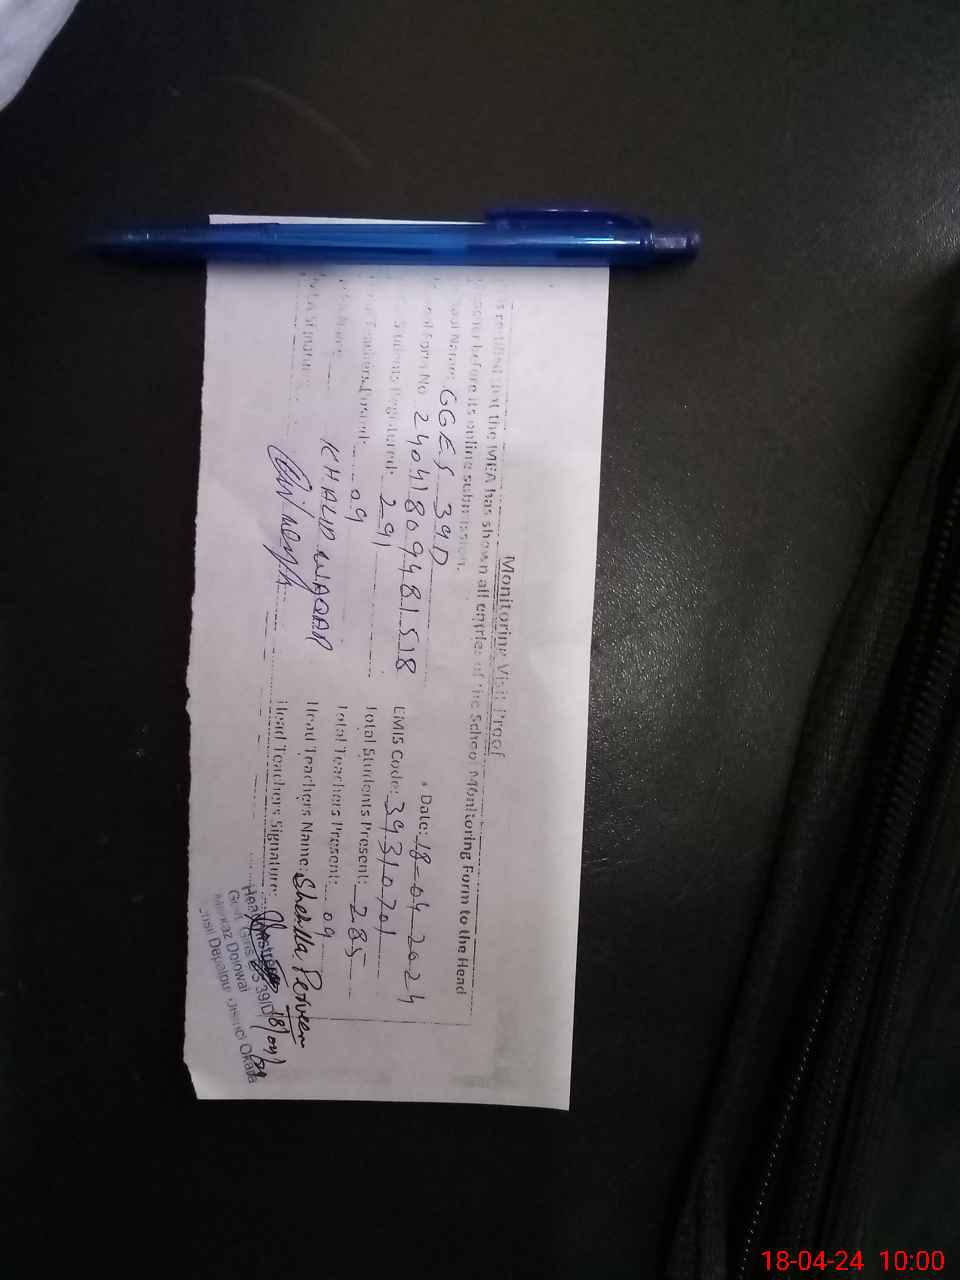 Monitoring Visit Proof
is certified that the MEA has shown all entries of the School Monitoring Form to the Head
Teacher before its online submission.
School Name: GGES 39D Date: 18-04-2024
Form No 24041809481518 EMIS Code: 39310701
Students Registered: 291 Total Students Present: 285
Teachers Posted: 09 Total Teachers Present: 09
Name KHALID WAQAR Head Teachers Name: Sheela Perveen
Signature Head Teachers Signature: 18/04/24
Headmistress
Govt. Girls ES 39/D
Markaz Dolowal
Tehsil Depalpur District Okara
18-04-24 10:00